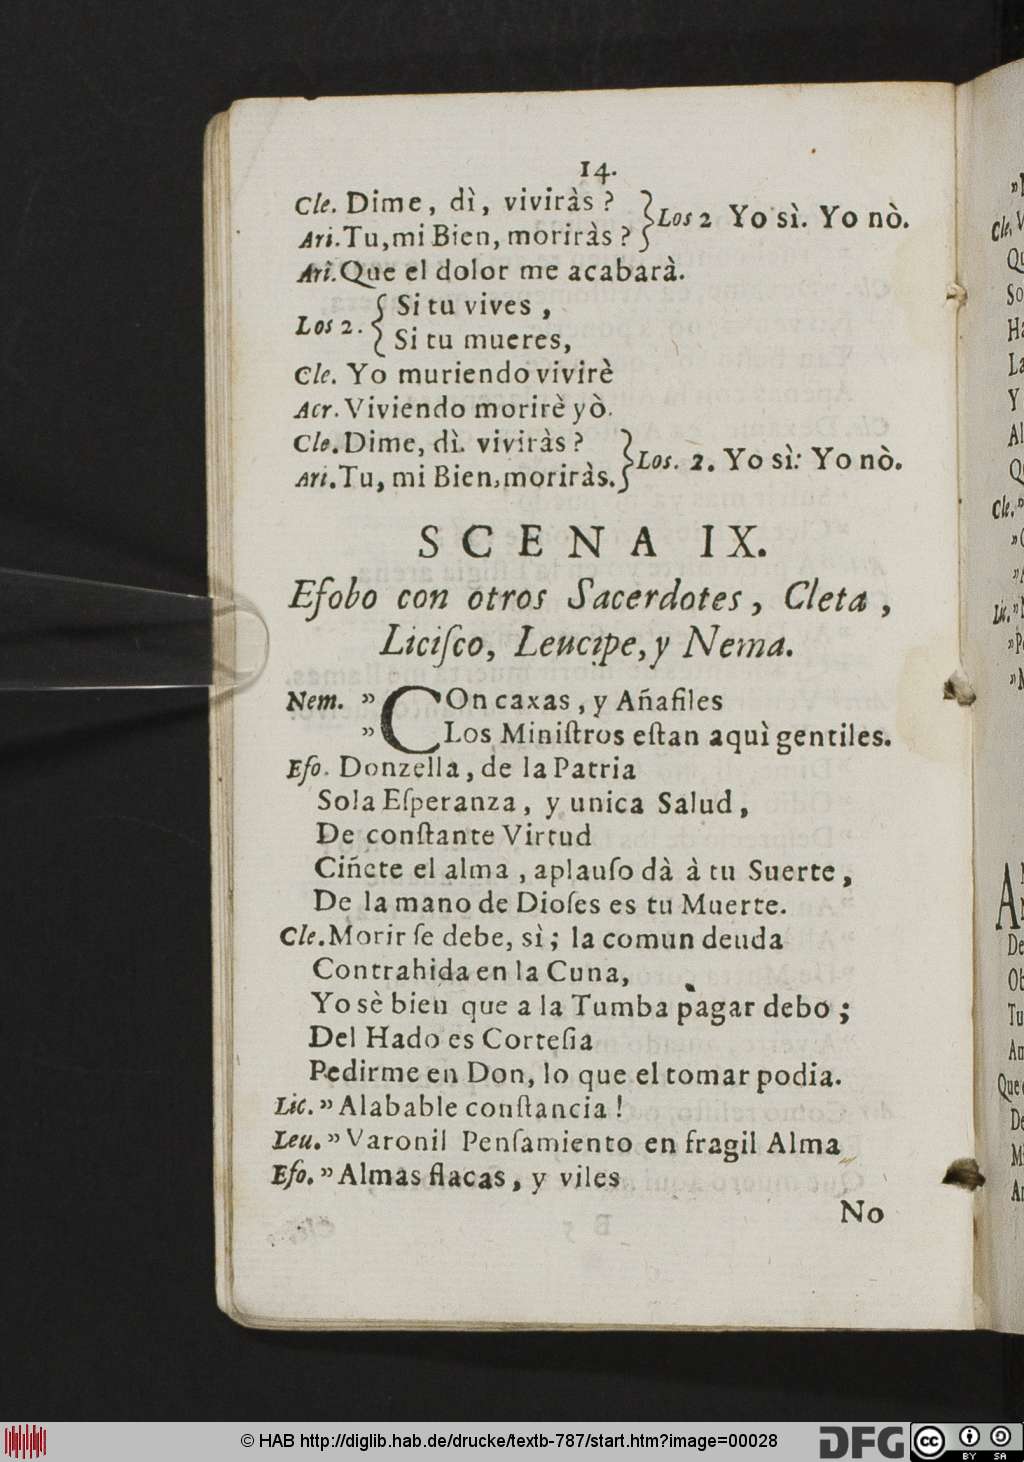 14.
Cle. Dime, dì, viviràs? } Los 2 Yo sì. Yo nò.
Ari. Tu, mi Bien, moriràs?
Ari. Que el dolor me acabarà.
Los 2. { Si tu vives,
Si tu mueres,
Cle. Yo muriendo vivirè
Acr. Viviendo morirè yò.
Cle. Dime, dì. viviràs? } Los. 2. Yo sì: Yo nò.
Ari. Tu, mi Bien, moriràs.
SCENA IX.
Efobo con otros Sacerdotes, Cleta,
Liciſco, Leucipe, y Nema.
Nem. " COn caxas, y Añafiles
" Los Miniſtros eſtan aquì gentiles.
Efo. Donzella, de la Patria
Sola Eſperanza, y unica Salud,
De conſtante Virtud
Ciñete el alma, aplauſo dà à tu Suerte,
De la mano de Dioſes es tu Muerte.
Cle. Morir ſe debe, sì; la comun deuda
Contrahida en la Cuna,
Yo sè bien que a la Tumba pagar debo;
Del Hado es Corteſia
Pedirme en Don, lo que el tomar podia.
Lic. " Alabable conſtancia!
Leu. " Varonil Penſamiento en fragil Alma
Efo. " Almas flacas, y viles
No
© HAB http://diglib.hab.de/drucke/textb-787/start.htm?image=00028
DFG
cc BY SA